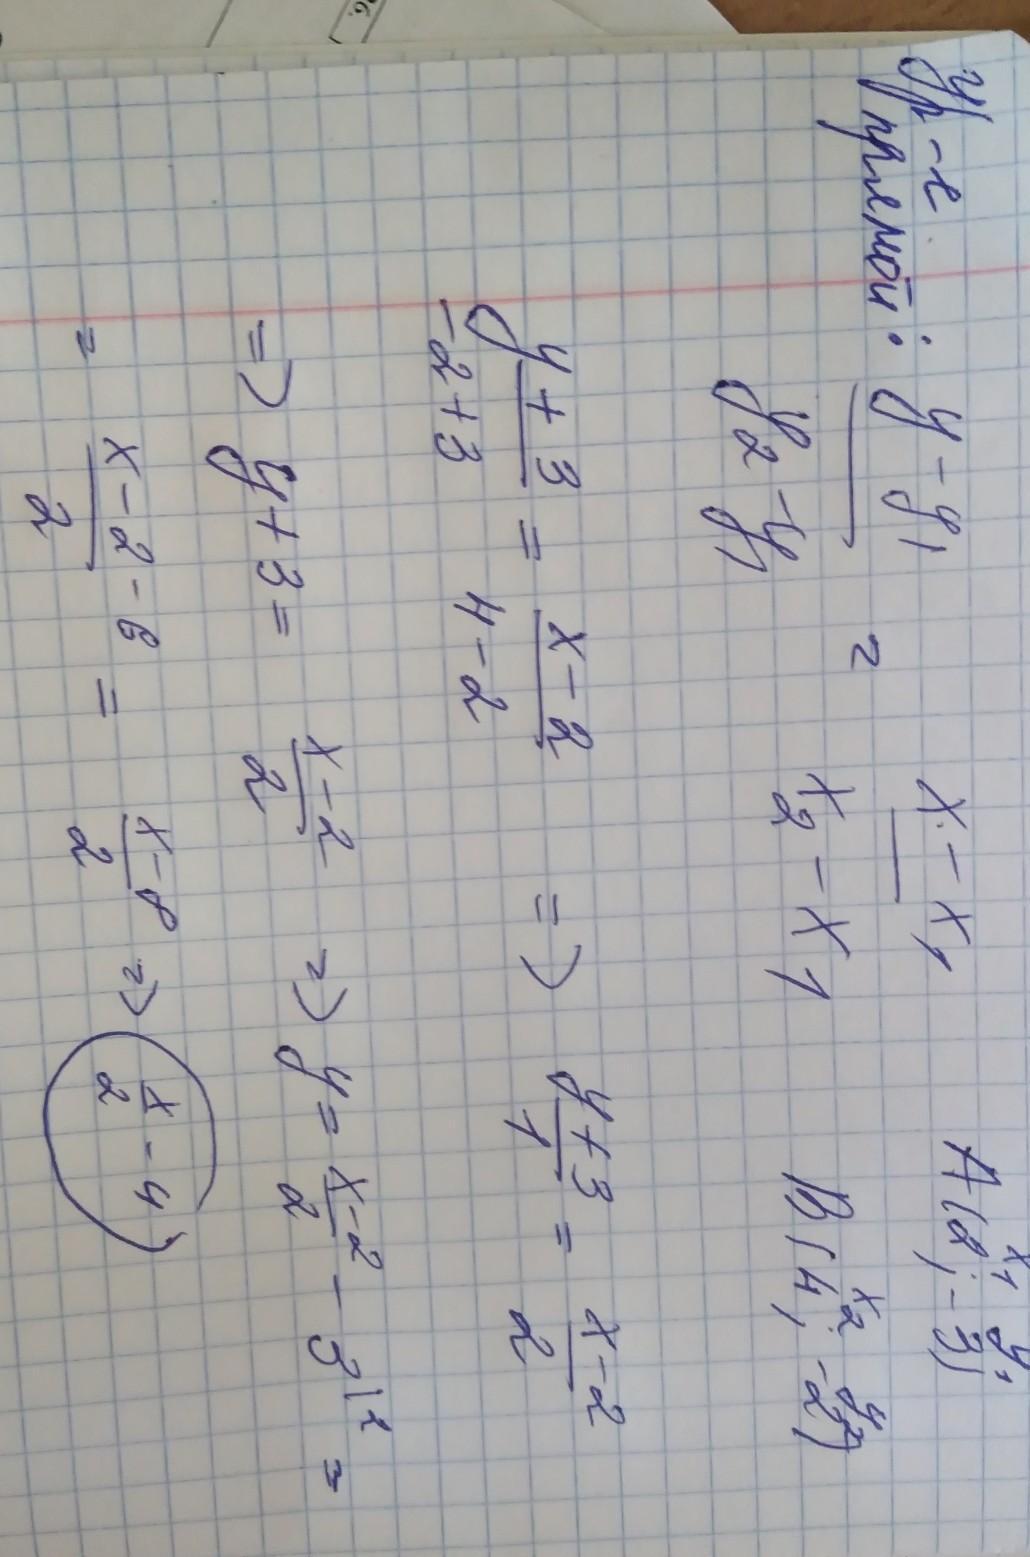 Ур-е прямой: (y - y₁)/(y₂ - y₁) = (x - x₁)/(x₂ - x₁)
x₁ y₁
A(2; -3)
x₂ y₂
B(4; -2)
(y + 3)/(-2 + 3) = (x - 2)/(4 - 2) => (y + 3)/1 = (x - 2)/2
=> y + 3 = (x - 2)/2 => y = (x - 2)/2 - 3|2 =
= (x - 2 - 6)/2 = (x - 8)/2 => x/2 - 4